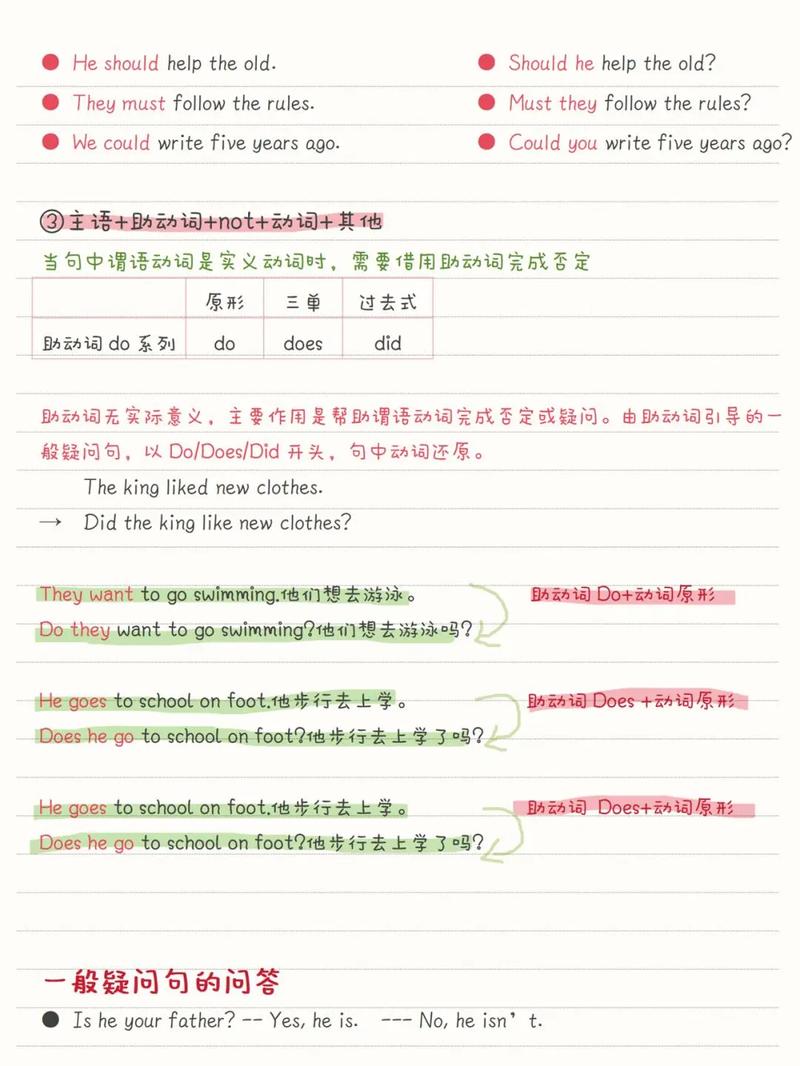 ● He should help the old. ● Should he help the old?
● They must follow the rules. ● Must they follow the rules?
● We could write five years ago. ● Could you write five years ago?
③主语+助动词+not+动词+其他
当句中谓语动词是实义动词时，需要借用助动词完成否定
原形 三单 过去式
助动词 do 系列 do does did
助动词无实际意义，主要作用是帮助谓语动词完成否定或疑问。由助动词引导的一
般疑问句，以 Do/Does/Did 开头，句中动词还原。
The king liked new clothes.
→ Did the king like new clothes?
They want to go swimming.他们想去游泳。 助动词 Do+动词原形
Do they want to go swimming?他们想去游泳吗?
He goes to school on foot.他步行去上学。 助动词 Does +动词原形
Does he go to school on foot?他步行去上学了吗?
He goes to school on foot.他步行去上学。 助动词 Does+动词原形
Does he go to school on foot?他步行去上学了吗?
一般疑问句的问答
● Is he your father? -- Yes, he is. --- No, he isn’t.